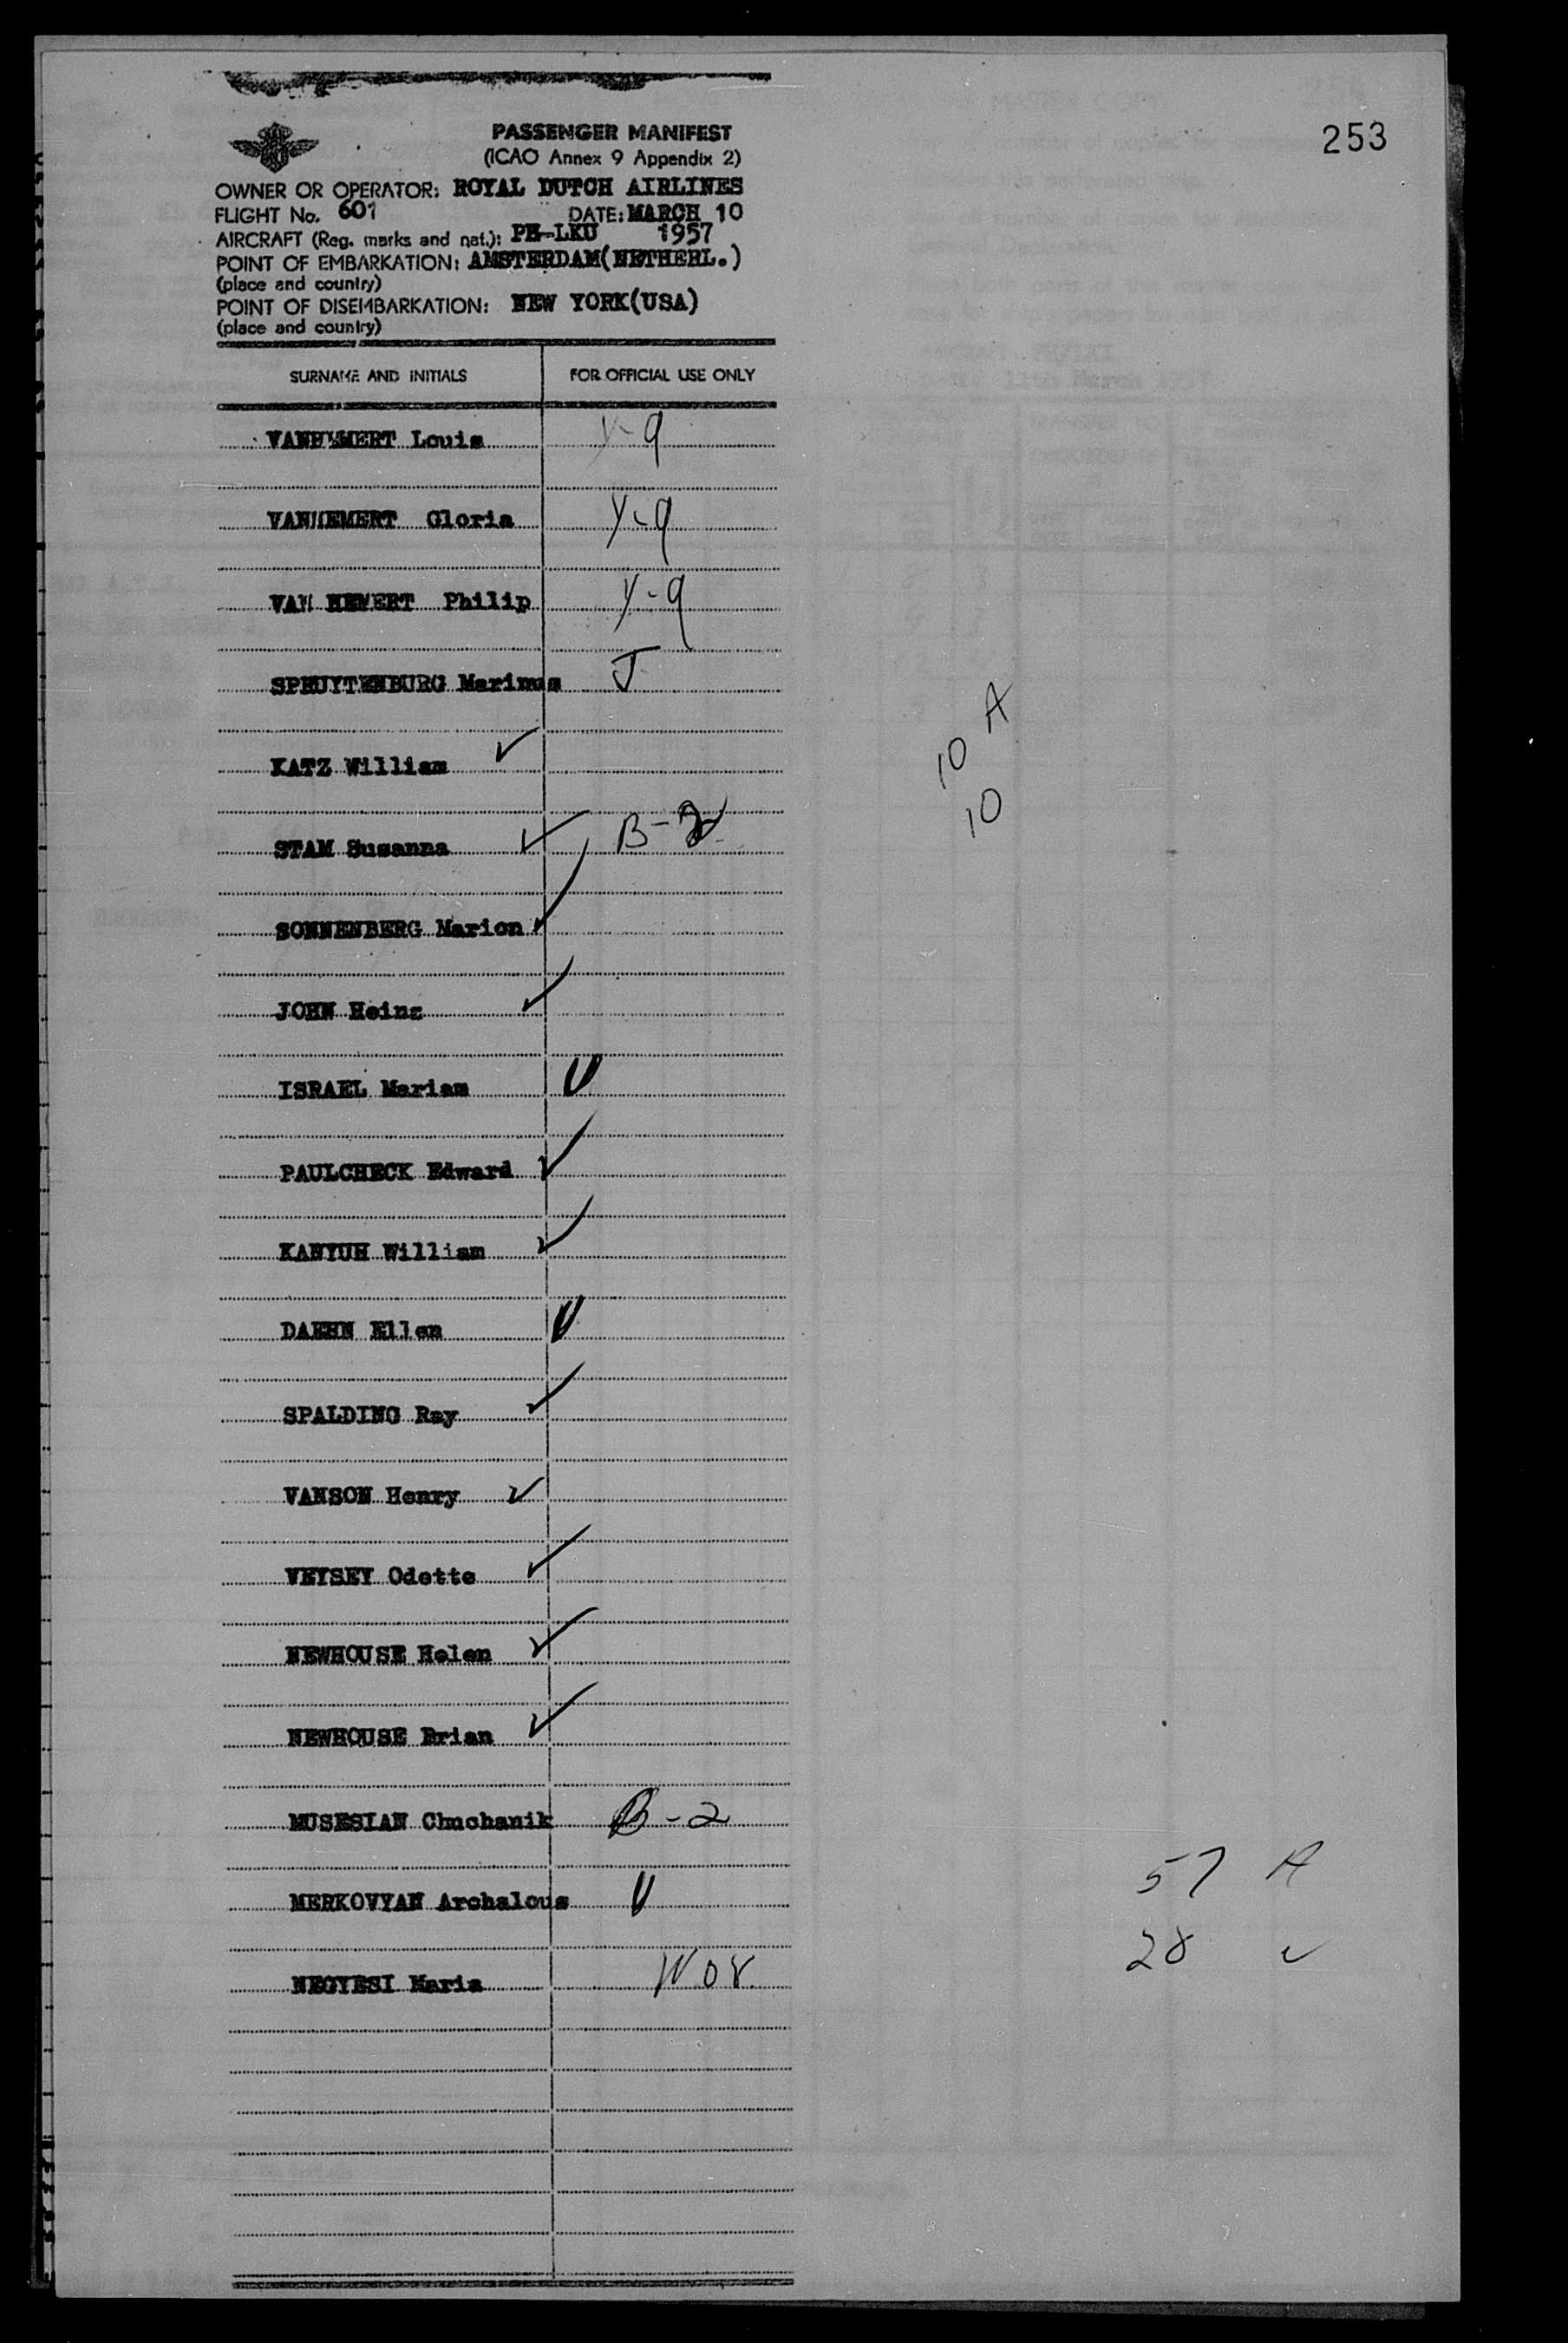 253
PASSENGER MANIFEST
(ICAO Annex 9 Appendix 2)
OWNER OR OPERATOR: ROYAL DUTCH AIRLINES
FLIGHT No. 601 DATE: MARCH 10
AIRCRAFT (Reg. marks and nat.): PH-LKU 1957
POINT OF EMBARKATION: AMSTERDAM(NETHERL.)
(place and country)
POINT OF DISEMBARKATION: NEW YORK(USA)
(place and country)
SURNAME AND INITIALS FOR OFFICIAL USE ONLY
VANHEMERT Louis Y-9
VANHEMERT Gloria Y-9
VAN HEMERT Philip Y-9
SPRUYTENBURG Marinus J
KATZ William ✓
STAM Susanna ✓ B-2
SONNENBERG Marion ✓
JOHN Heinz ✓
ISRAEL Mariam V
PAULCHECK Edward ✓
KANYUH William ✓
DAEHN Ellen V
SPALDING Ray ✓
VANSON Henry ✓
VEYSEY Odette ✓
NEWHOUSE Helen ✓
NEWHOUSE Brian ✓
MUSESIAN Chuchanik B-2
MERKOVYAN Archalous V
NEGYESI Maria W08
10 A
10
57 A
28 ✓